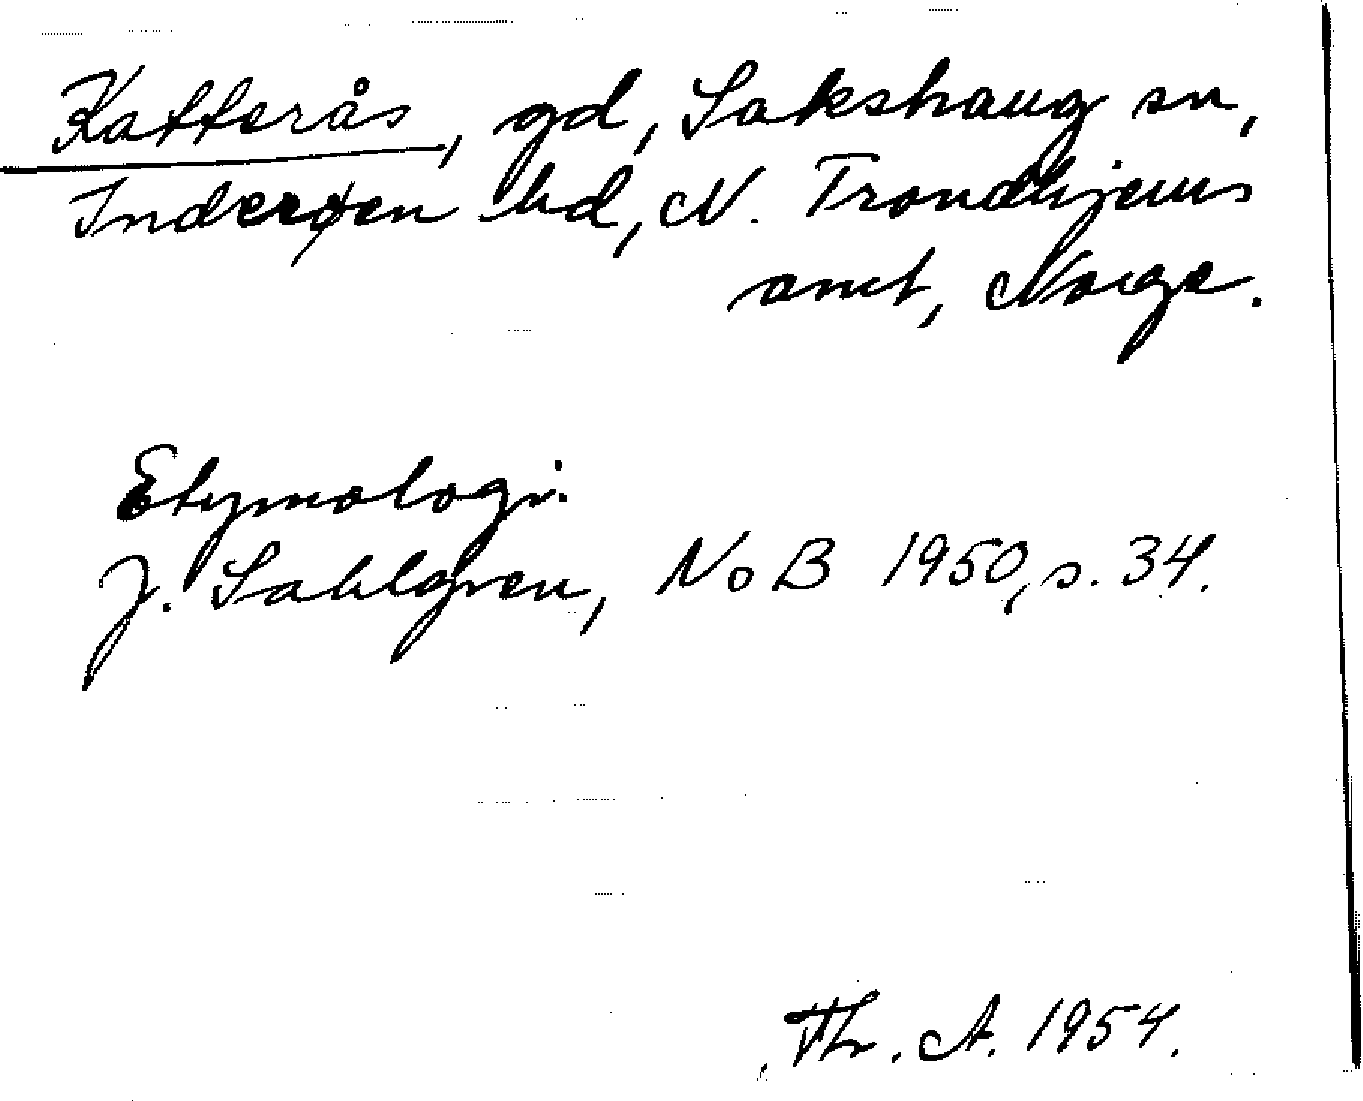 Katterås, gd, Sakshaug sn,
Inderøen hd, N. Trondhjems
amt, Norge.
Etymologi.
J. Sahlgren, NoB 1950, s. 34.
Th. A. 1954.